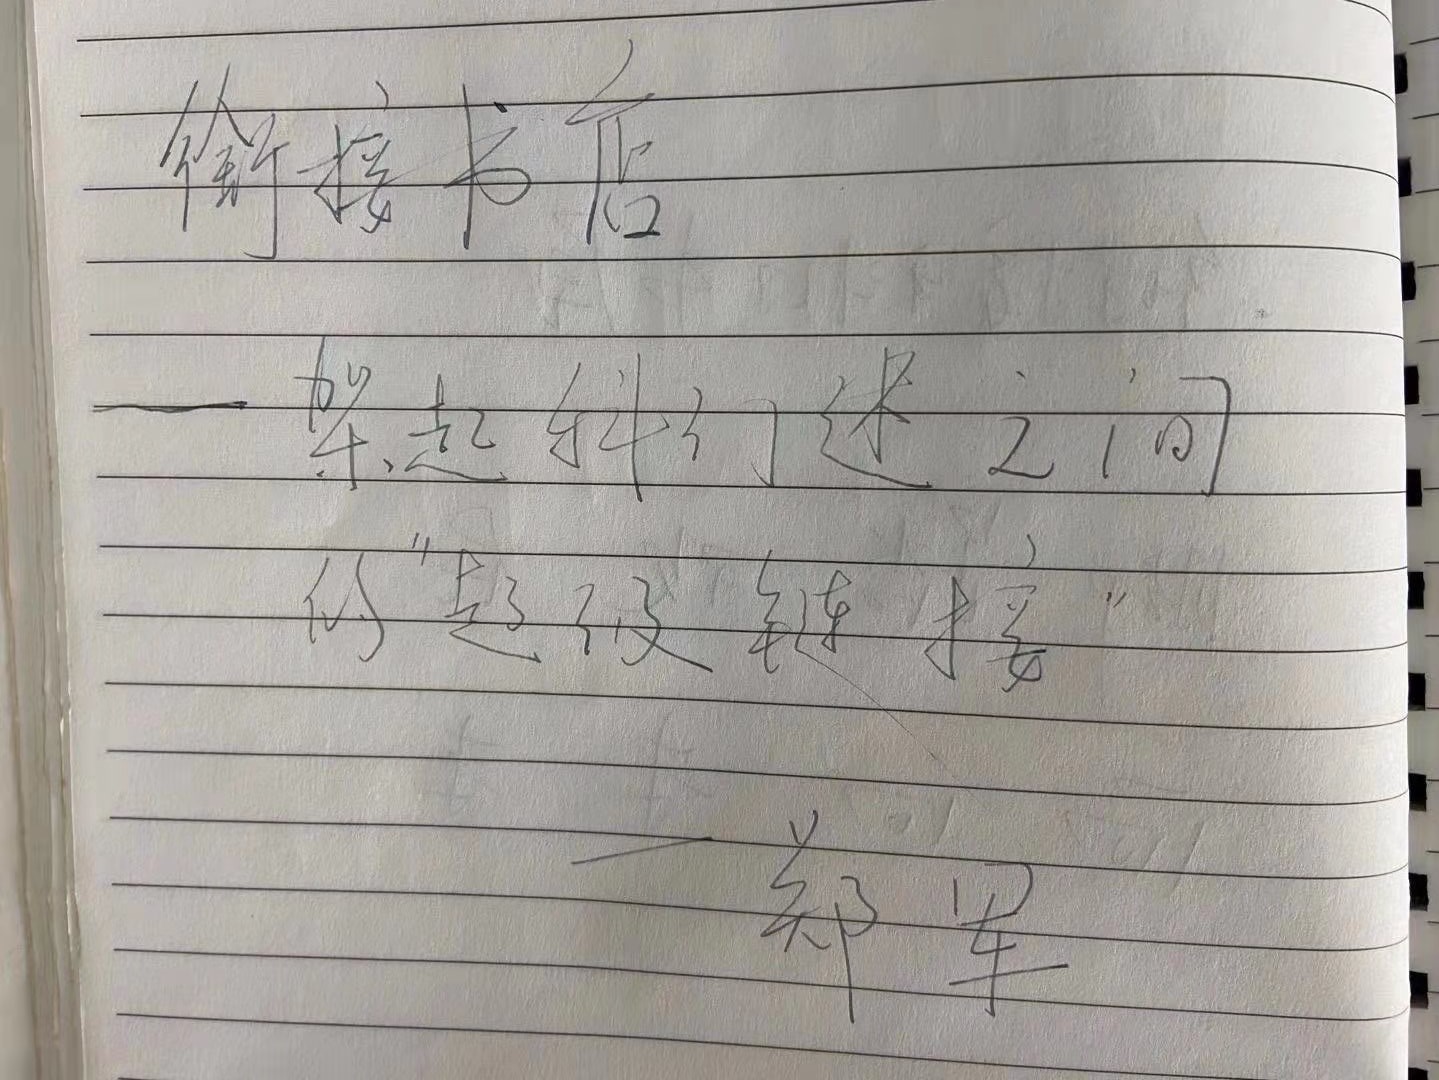 衔接书店
——架起科幻迷之间
的"超级链接"
—郑军